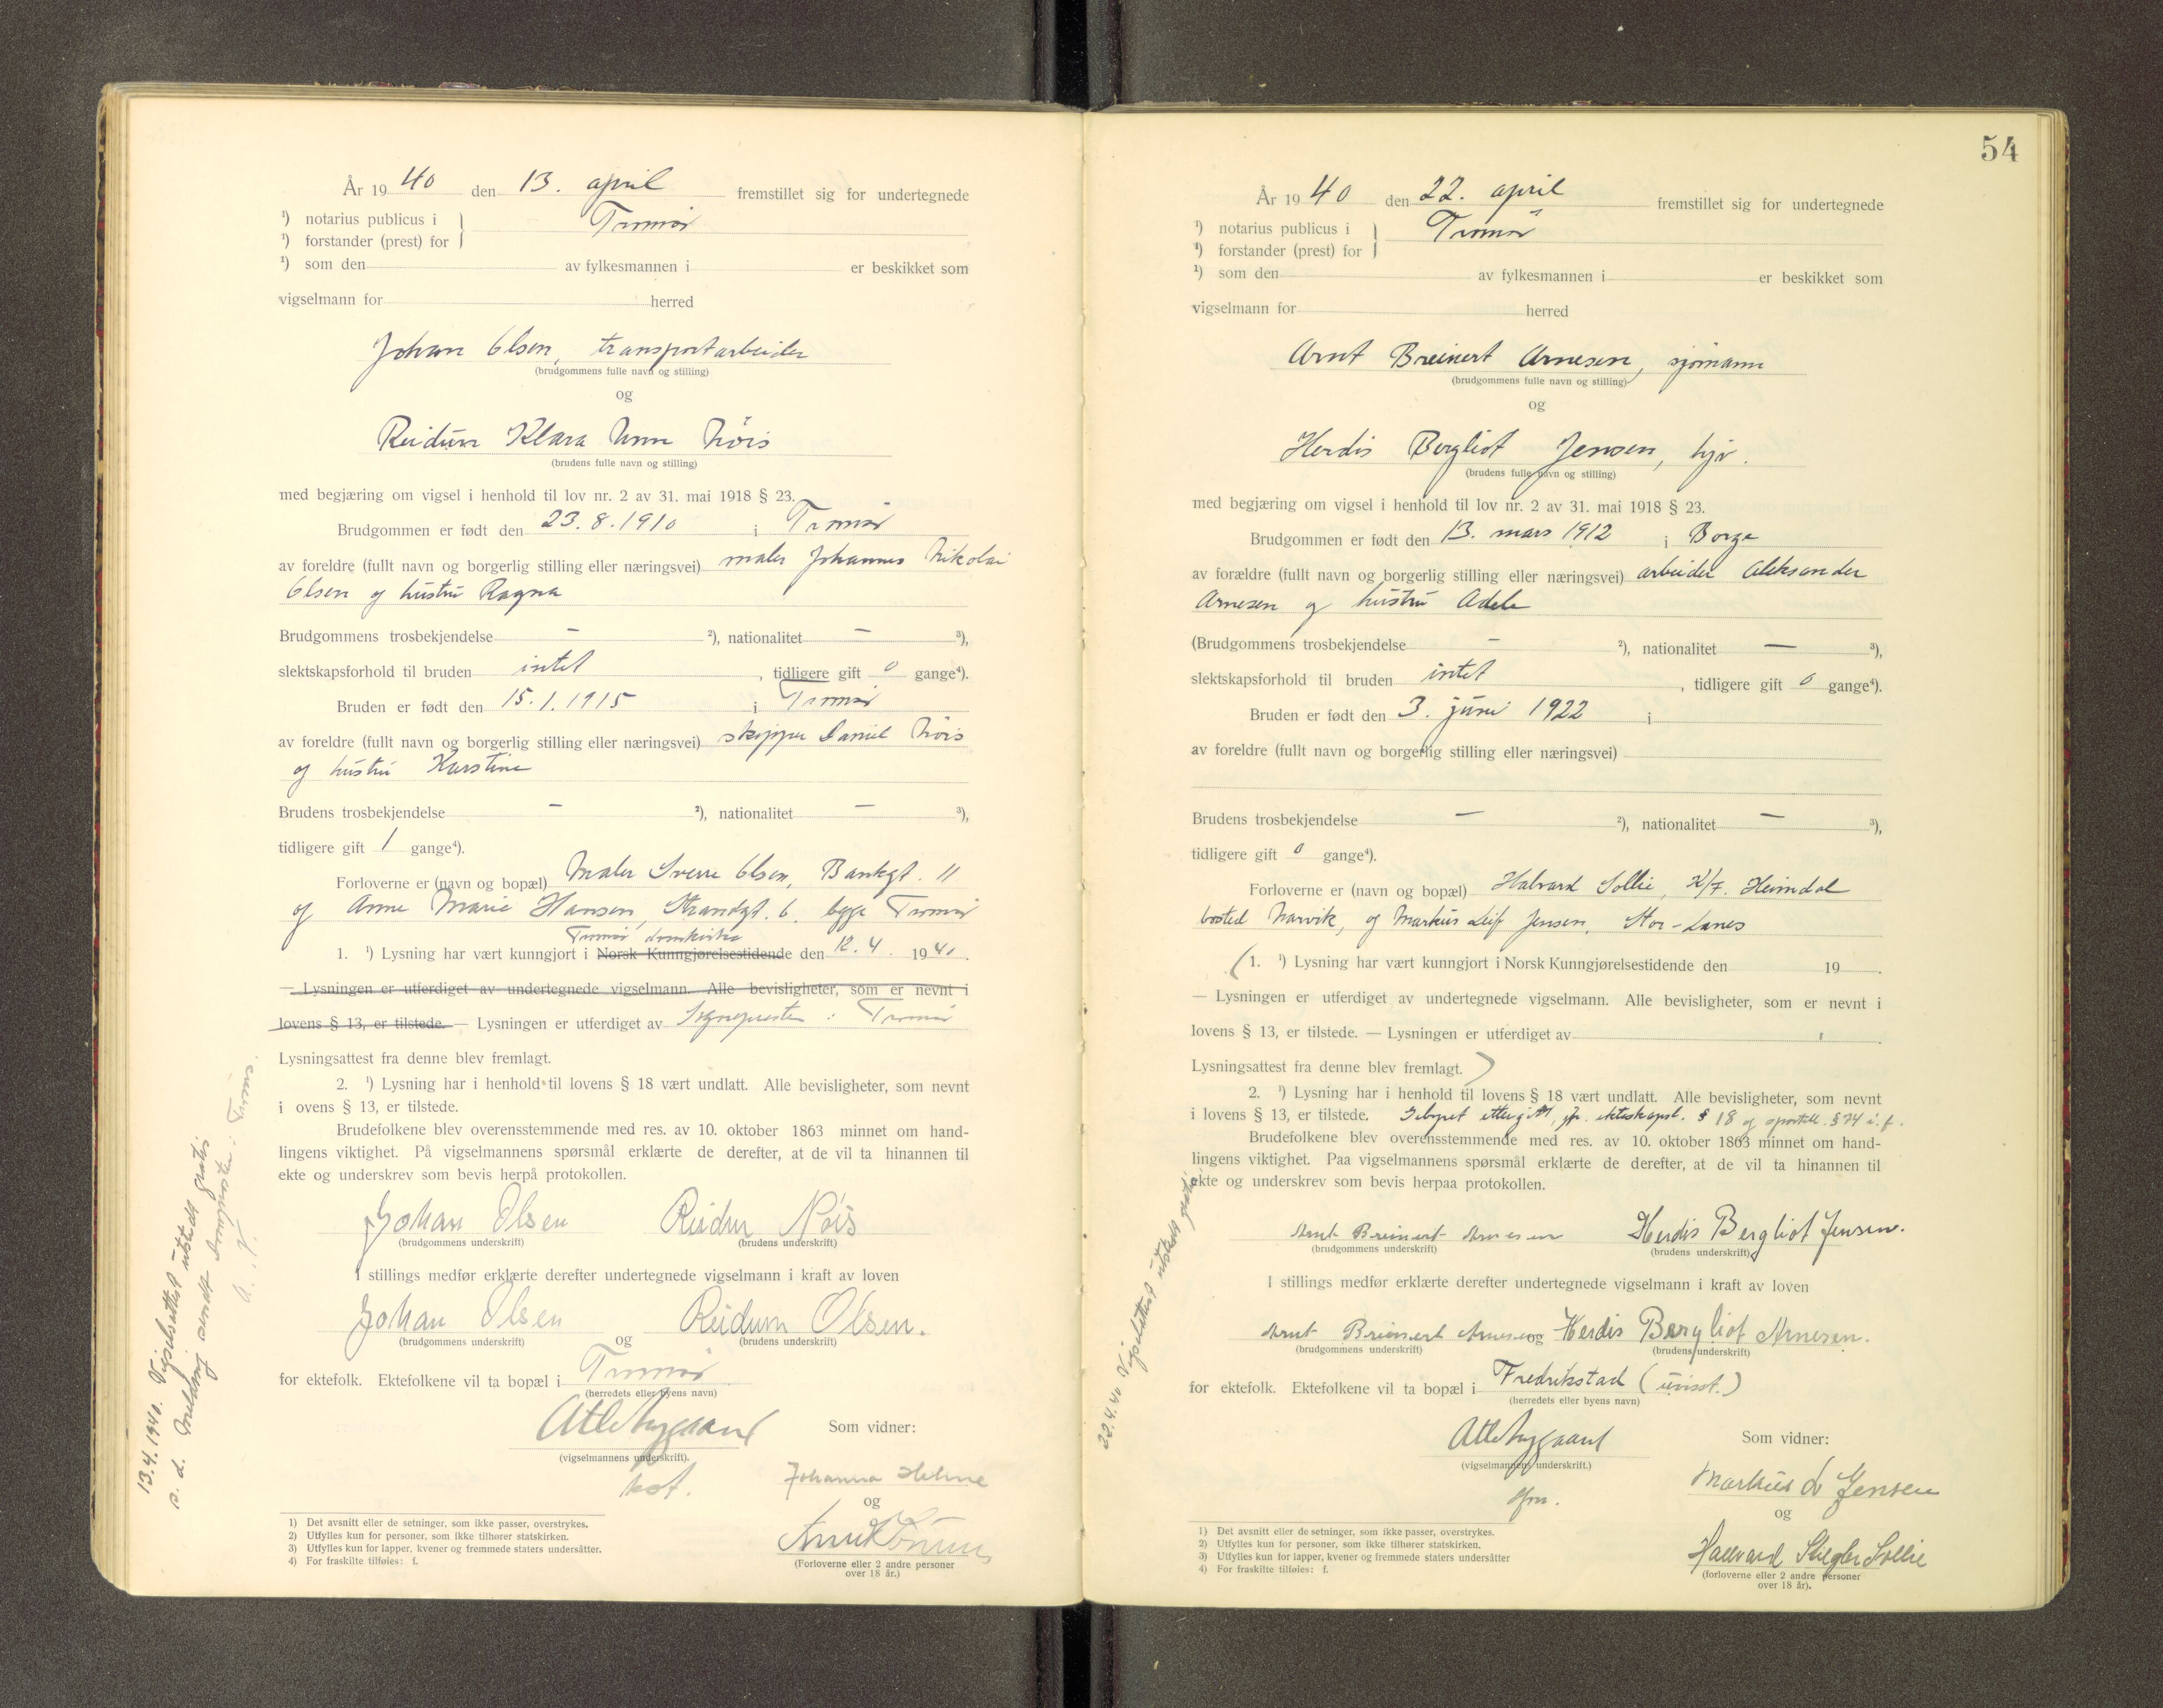 År 1940 den 13. april fremstillet sig for undertegnede
¹) notarius publicus i } Tromsø
¹) forstander (prest) for }
¹) som den av fylkesmannen i er beskikket som
vigselmann for herred
Johan Olsen, transportarbeider
(brudgommens fulle navn og stilling)
og
Reidun Klara Unn Nöis
(brudens fulle navn og stilling)
med begjæring om vigsel i henhold til lov nr. 2 av 31. mai 1918 § 23.
Brudgommen er født den 23.8.1910 i Tromsø
av foreldre (fullt navn og borgerlig stilling eller næringsvei) maler Johannes Nikolai
Olsen og hustru Ragna
Brudgommens trosbekjendelse — ²), nationalitet — ³),
slektskapsforhold til bruden intet, tidligere gift 0 gange⁴).
Bruden er født den 15.1.1915 i Tromsø
av foreldre (fullt navn og borgerlig stilling eller næringsvei) skipper Daniel Nöis
og hustru Karstine
Brudens trosbekjendelse — ²), nationalitet — ³),
tidligere gift 1 gange⁴).
Forloverne er (navn og bopæl) Maler Sverre Olsen, Bankgt. 11
og Anne Marie Hansen, Strandgt. 6. begge Tromsø
Tromsø domkirke
1. ¹) Lysning har vært kunngjort i Norsk Kunngjørelsestidende den 12.4. 1940.
— Lysningen er utferdiget av undertegnede vigselmann. Alle bevisligheter, som er nevnt i
lovens § 13, er tilstede. — Lysningen er utferdiget av Sognepresten i Tromsø
Lysningsattest fra denne blev fremlagt.
2. ¹) Lysning har i henhold til lovens § 18 vært undlatt. Alle bevisligheter, som nevnt
i ovens § 13, er tilstede.
Brudefolkene blev overensstemmende med res. av 10. oktober 1863 minnet om hand-
lingens viktighet. På vigselmannens spørsmål erklærte de derefter, at de vil ta hinannen til
ekte og underskrev som bevis herpå protokollen.
Johan Olsen Reidun Nöis
(brudgommens underskrift) (brudens underskrift)
I stillings medfør erklærte derefter undertegnede vigselmann i kraft av loven
Johan Olsen og Reidun Olsen.
(brudgommens underskrift) (brudens underskrift)
for ektefolk. Ektefolkene vil ta bopæl i Tromsø
(herredets eller byens navn)
Som vidner:
(vigselmannens underskrift).
Johanna
og
(Forloverne eller 2 andre personer
over 18 år.)
1) Det avsnitt eller de setninger, som ikke passer, overstrykes.
2) Utfylles kun for personer, som ikke tilhører statskirken.
3) Utfylles kun for lapper, kvener og fremmede staters undersåtter.
4) For fraskilte tilføies: f.
13.4.1940. Vigselsattest utstedt gratis.
s. d. Melding sendt Sognepresten i Tromsø.
54
År 1940 den 22. april fremstillet sig for undertegnede
¹) notarius publicus i } Tromsø
¹) forstander (prest) for }
¹) som den av fylkesmannen i er beskikket som
vigselmann for herred
Arnt Breinert Arnesen, sjømann
(brudgommens fulle navn og stilling)
og
Herdis Bergliot Jensen, hjv.
(brudens fulle navn og stilling)
med begjæring om vigsel i henhold til lov nr. 2 av 31. mai 1918 § 23.
Brudgommen er født den 13. mars 1912 i Borge
av forældre (fullt navn og borgerlig stilling eller næringsvei) arbeider Aleksander
Arnesen og hustru Adele
(Brudgommens trosbekjendelse — ²), nationalitet — ³),
slektskapsforhold til bruden intet, tidligere gift 0 gange⁴).
Bruden er født den 3. juni 1922 i
av foreldre (fullt navn og borgerlig stilling eller næringsvei)
Brudens trosbekjendelse — ²), nationalitet — ³),
tidligere gift 0 gange⁴).
Forloverne er (navn og bopæl) Halvard Sollie, K/F. Heimdal
bosted Narvik, og Markus Leif Jensen, Stor-Lanes
(1. ¹) Lysning har vært kunngjort i Norsk Kunngjørelsestidende den 19 .
— Lysningen er utferdiget av undertegnede vigselmann. Alle bevisligheter, som er nevnt i
lovens § 13, er tilstede. — Lysningen er utferdiget av
Lysningsattest fra denne blev fremlagt. )
2. ¹) Lysning har i henhold til lovens § 18 vært undlatt. Alle bevisligheter, som nevnt
i lovens § 13, er tilstede. Gebyret ettergitt, jfr. ekteskapsl. § 18 og sportell. § 74 i. f.
Brudefolkene blev overensstemmende med res. av 10. oktober 1863 minnet om hand-
lingens viktighet. Paa vigselmannens spørsmål erklærte de derefter, at de vil ta hinannen til
ekte og underskrev som bevis herpaa protokollen.
Arnt Breinert Arnesen Herdis Bergliot Jensen.
(brudgommens underskrift) (brudens underskrift)
I stillings medfør erklærte derefter undertegnede vigselmann i kraft av loven
Arnt Breinert Arnesen og Herdis Bergliot Arnesen.
(brudgommens underskrift) (brudens underskrift)
for ektefolk. Ektefolkene vil ta bopæl i Fredrikstad (uvisst.)
(herredets eller byens navn)
Som vidner:
(vigselmannens underskrift.)
Markus L Jensen
og
Hallvard Stiegler Sollie
(forloverne eller 2 andre personer
over 18 år).
1) Det avsnitt eller de setninger, som ikke passer, overstrykes.
2) Utfylles kun for personer, som ikke tilhører statskirken.
3) Utfylles kun for lapper, kvener og fremmede staters undersåtter
4) For fraskilte tilføies: f.
22.4.40 Vigselattest utstedt gratis